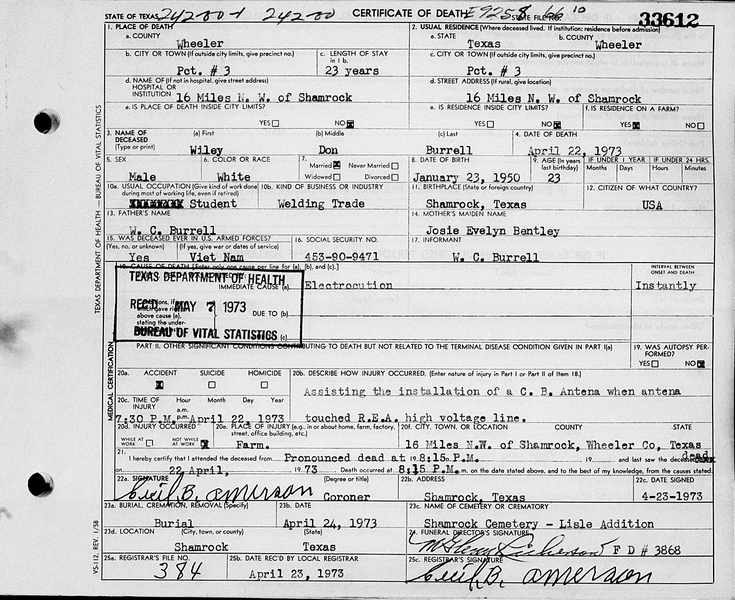 STATE OF TEXAS 242001 24200 CERTIFICATE OF DEATH E9258 66 10 STATE FILE NO. 33612
1. PLACE OF DEATH 2. USUAL RESIDENCE (Where deceased lived. If institution: residence before admission)
a. COUNTY a. STATE b. COUNTY
Wheeler Texas Wheeler
b. CITY OR TOWN (If outside city limits, give precinct no.) c. LENGTH OF STAY in 1 b. c. CITY OR TOWN (If outside city limits, give precinct no.)
Pct. # 3 23 years Pct. # 3
d. NAME OF (If not in hospital, give street address) HOSPITAL OR INSTITUTION d. STREET ADDRESS (If rural, give location)
16 Miles N. W. of Shamrock 16 Miles N. W. of Shamrock
e. IS PLACE OF DEATH INSIDE CITY LIMITS? e. IS RESIDENCE INSIDE CITY LIMITS? f. IS RESIDENCE ON A FARM?
YES NO YES NO YES NO
3. NAME OF DECEASED (Type or print) (a) First (b) Middle (c) Last 4. DATE OF DEATH
Wiley Don Burrell April 22, 1973
5. SEX 6. COLOR OR RACE 7. Married Never Married Widowed Divorced 8. DATE OF BIRTH 9. AGE (In years last birthday) IF UNDER 1 YEAR IF UNDER 24 HRS.
Months Days Hours Minutes
Male White January 23, 1950 23
10a. USUAL OCCUPATION (Give kind of work done during most of working life, even if retired) 10b. KIND OF BUSINESS OR INDUSTRY 11. BIRTHPLACE (State or foreign country) 12. CITIZEN OF WHAT COUNTRY?
Student Welding Trade Shamrock, Texas USA
13. FATHER'S NAME 14. MOTHER'S MAIDEN NAME
W. C. Burrell Josie Evelyn Bentley
15. WAS DECEASED EVER IN U.S. ARMED FORCES? 16. SOCIAL SECURITY NO. 17. INFORMANT
(Yes, no, or unknown) (If yes, give war or dates of service)
Yes Viet Nam 453-90-9471 W. C. Burrell
18. CAUSE OF DEATH [Enter only one cause per line for (a), (b), and (c).] INTERVAL BETWEEN ONSET AND DEATH
TEXAS DEPARTMENT OF HEALTH
IMMEDIATE CAUSE (a) Electrocution Instantly
REC'D MAY 7 1973
DUE TO (b)
above cause (a), stating the under-
BUREAU OF VITAL STATISTICS
(c)
PART II. OTHER SIGNIFICANT CONDITIONS CONTRIBUTING TO DEATH BUT NOT RELATED TO THE TERMINAL DISEASE CONDITION GIVEN IN PART I(a) 19. WAS AUTOPSY PERFORMED?
YES NO
20a. ACCIDENT SUICIDE HOMICIDE 20b. DESCRIBE HOW INJURY OCCURRED. (Enter nature of injury in Part I or Part II of Item 18.)
Assisting the installation of a C. B. Antena when antena
20c. TIME OF INJURY Hour Month Day Year a.m. p.m.
7:30 P.M. April 22, 1973 touched R.E.A. high voltage line.
20d. INJURY OCCURRED 20e. PLACE OF INJURY (e.g., in or about home, farm, factory, street, office building, etc.) 20f. CITY, TOWN, OR LOCATION COUNTY STATE
WHILE AT WORK NOT WHILE AT WORK Farm. 16 Miles N.W. of Shamrock, Wheeler Co, Texas
21. I hereby certify that I attended the deceased from Pronounced dead at 8:15 P.M. 19 and last saw the deceased dead
on 22 April, 19 73 Death occurred at 8:15 P.M. m. on the date stated above, and to the best of my knowledge, from the causes stated.
22a. SIGNATURE (Degree or title) 22b. ADDRESS 22c. DATE SIGNED
Cecil B. Amerson Coroner Shamrock, Texas 4-23-1973
23a. BURIAL, CREMATION, REMOVAL (Specify) 23b. DATE 23c. NAME OF CEMETERY OR CREMATORY
Burial April 24, 1973 Shamrock Cemetery - Lisle Addition
23d. LOCATION (City, town, or county) (State) 24. FUNERAL DIRECTOR'S SIGNATURE
Shamrock Texas F D # 3868
25a. REGISTRAR'S FILE NO. 25b. DATE REC'D BY LOCAL REGISTRAR 25c. REGISTRAR'S SIGNATURE
384 April 23, 1973 Cecil B. Amerson
TEXAS DEPARTMENT OF HEALTH—BUREAU OF VITAL STATISTICS
MEDICAL CERTIFICATION
VS-112 REV. 1/58